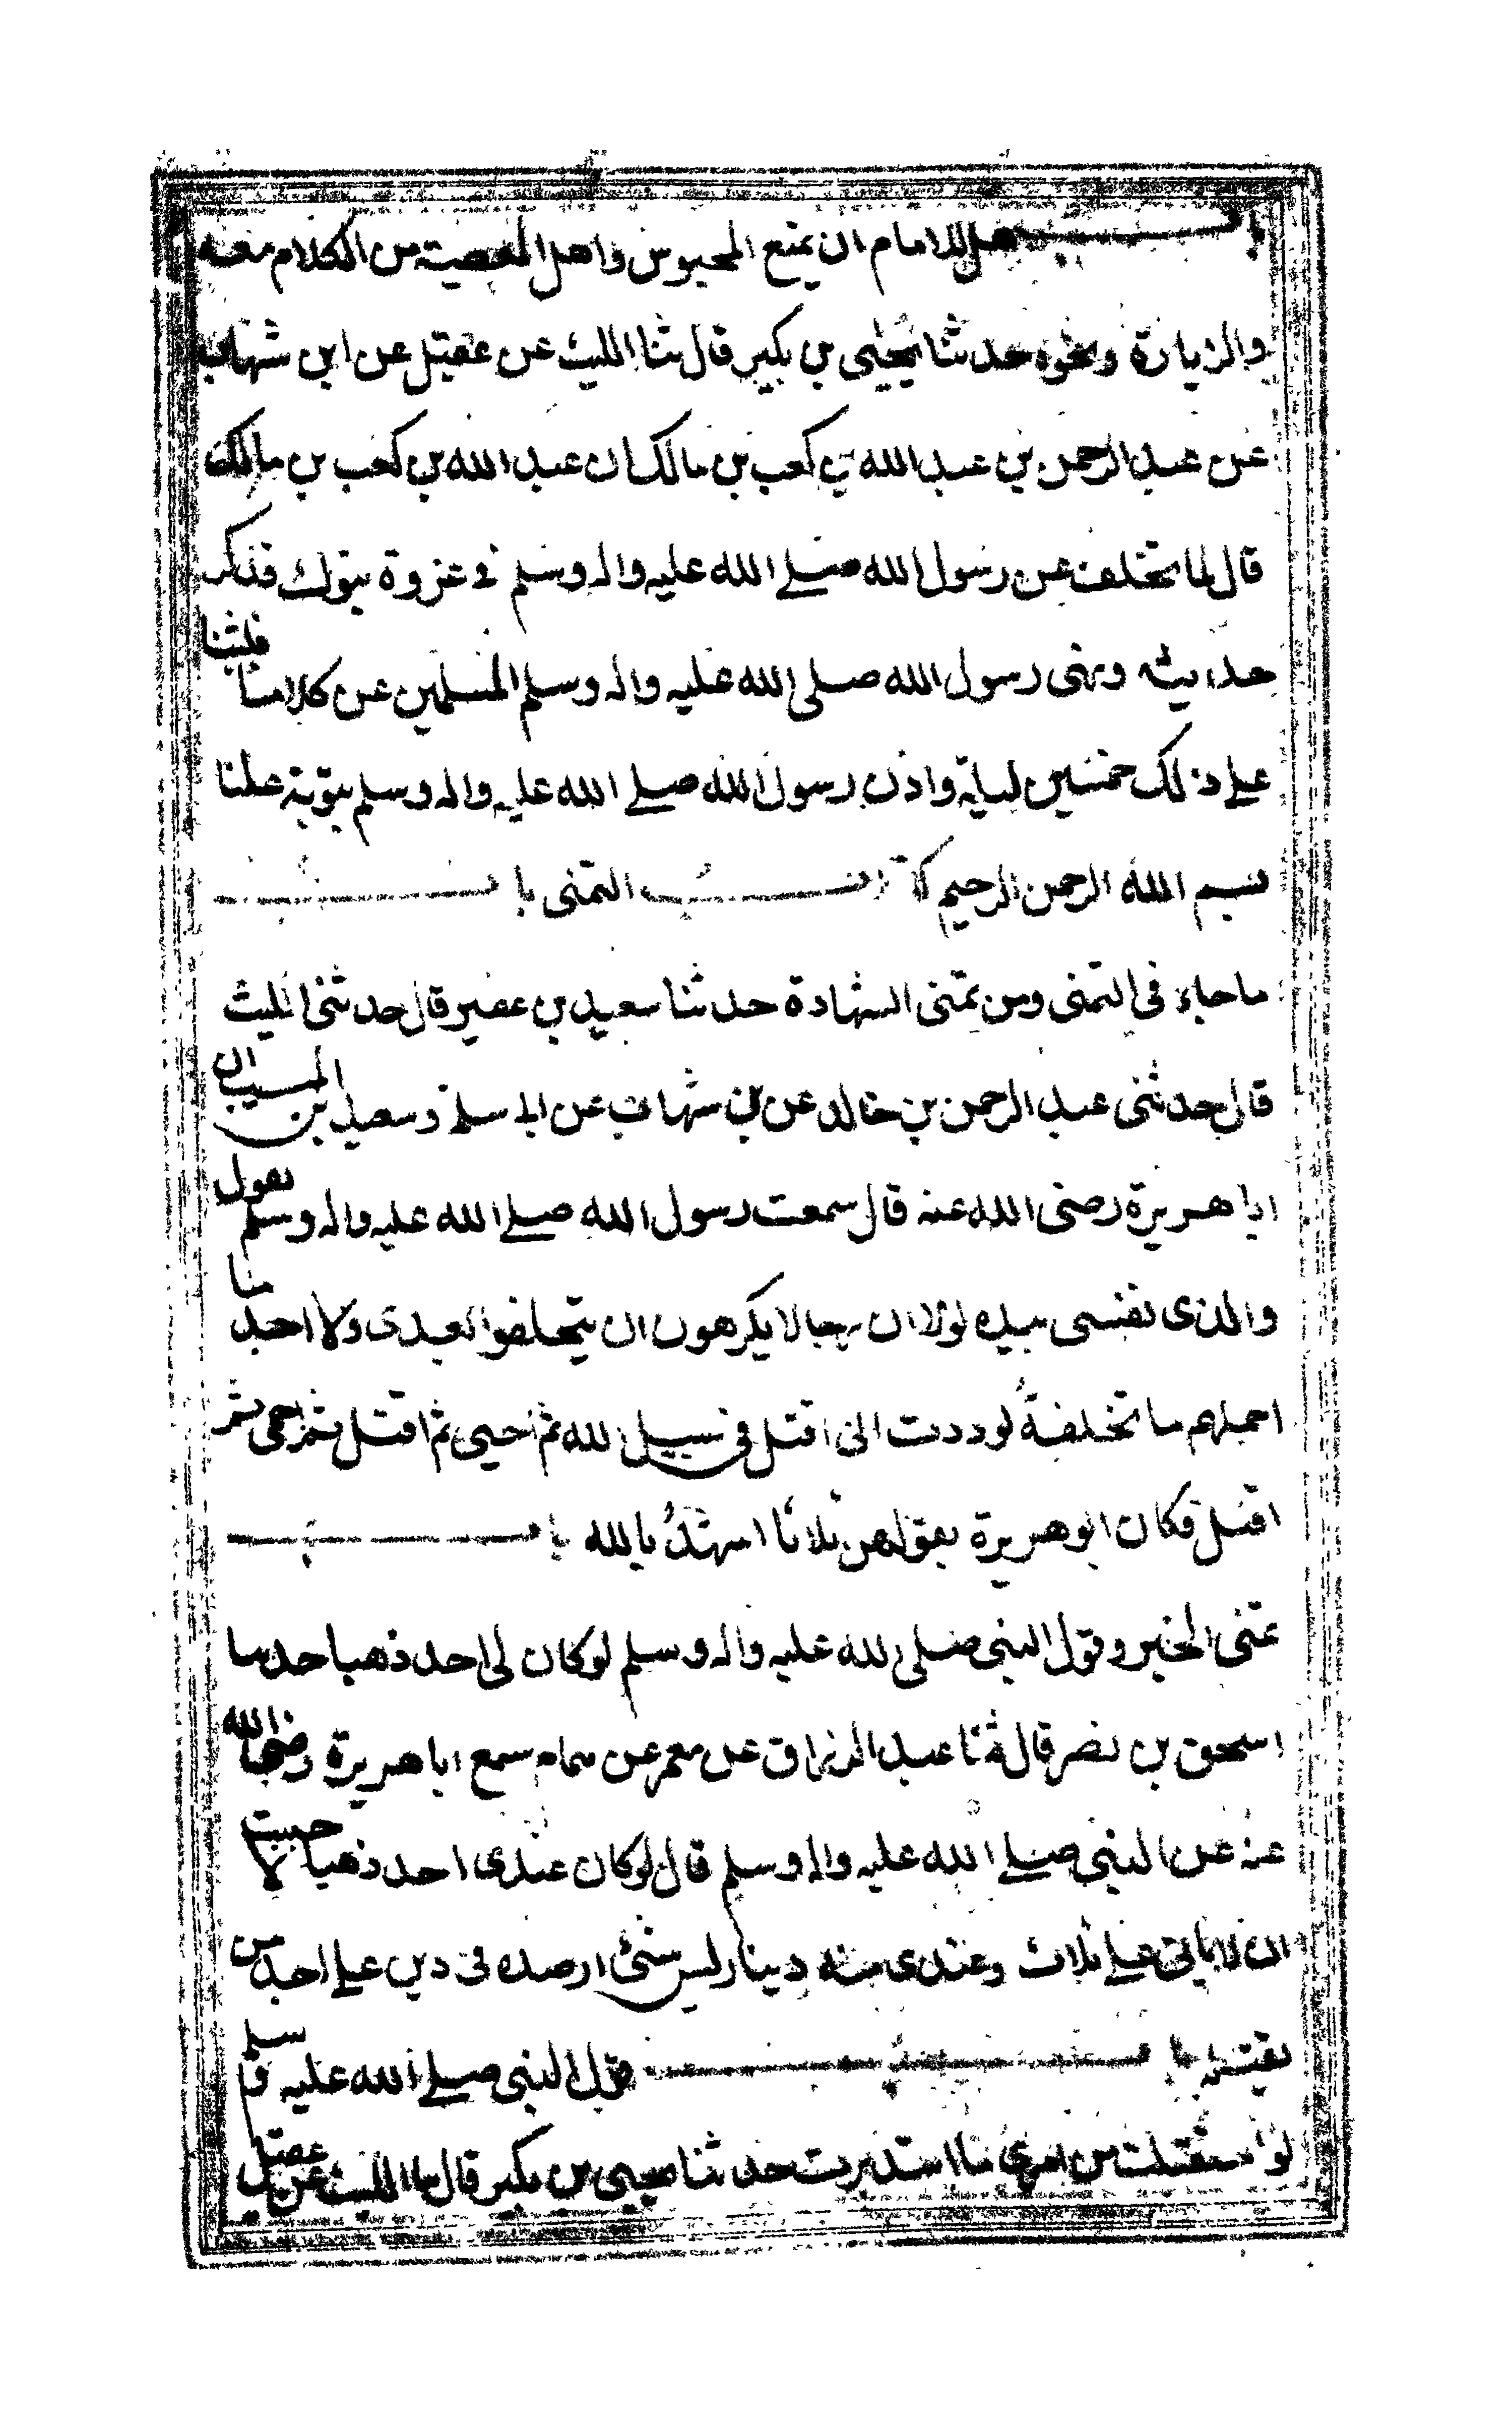 باب هل للامام ان يمنع المحبوس واهل المعصية من الكلام معه
والزيارة ونحوه حدثنا يحيى بن بكير قال ثنا الليث عن عقيل عن ابن شهاب
عن عبد الرحمن بن عبد الله بن كعب بن مالك ان عبد الله بن كعب بن مالك
قال لما تخلف عن رسول الله صلى الله عليه واله وسلم في غزوة تبوك فذكر
حديثه ونهى رسول الله صلى الله عليه واله وسلم المسلمين عن كلامنا فلبثنا
على ذلك خمسين ليلة واذن رسول الله صلى الله عليه واله وسلم بتوبة علينا
بسم الله الرحمن الرحيم كتاب التمنى باب
ما جاء فى التمنى ومن تمنى الشهادة حدثنا سعيد بن عفير قال حدثنى الليث
قال حدثنى عبد الرحمن بن خالد عن بن شهاب عن ابى سلمة وسعيد بن المسيب ان
ابا هريرة رضى الله عنه قال سمعت رسول الله صلى الله عليه واله وسلم يقول
والذى نفسى بيده لولا ان رجالا يكرهون ان يتخلفوا بعدى ولا احد ما
احملهم ما تخلفت لوددت انى اقتل فى سبيل الله ثم احيى ثم اقتل ثم احيى ثم
اقتل فكان ابو هريرة يقولهن ثلاثا اشهد بالله باب
تمنى الخير وقول النبى صلى الله عليه واله وسلم لو كان لى احد ذهبا حدثنا
اسحق بن نصر قال ثنا عبد الرزاق عن معمر عن همام سمع ابا هريرة رضى الله
عنه عن النبى صلى الله عليه واله وسلم قال لو كان عندى احد ذهبا لاحببت
ان لا ياتى على ثلاث وعندى منه دينار ليس شئ ارصده فى دين على احد من
يقبله باب قول النبى صلى الله عليه وسلم
لو استقبلت من امرى ما استدبرت حدثنا يحيى بن بكير قال ثنا الليث عن عقيل